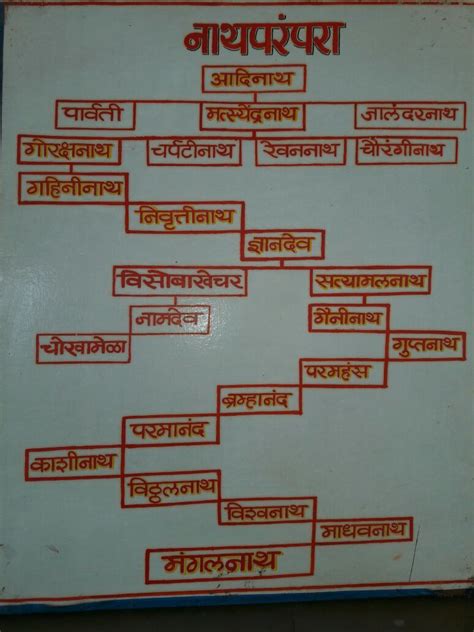 नाथपरंपरा
आदिनाथ
पार्वती मत्स्येंद्रनाथ जालंदरनाथ
गोरक्षनाथ चर्पटीनाथ रेवननाथ चौरंगीनाथ
गहिनीनाथ
निवृत्तीनाथ
ज्ञानदेव
विसोबाखेचर सत्यामलनाथ
नामदेव गैनीनाथ
चोखामेळा गुप्तनाथ
परमहंस
ब्रम्हानंद
परमानंद
काशीनाथ
विठ्ठलनाथ
विश्वनाथ
माधवनाथ
मंगलनाथ